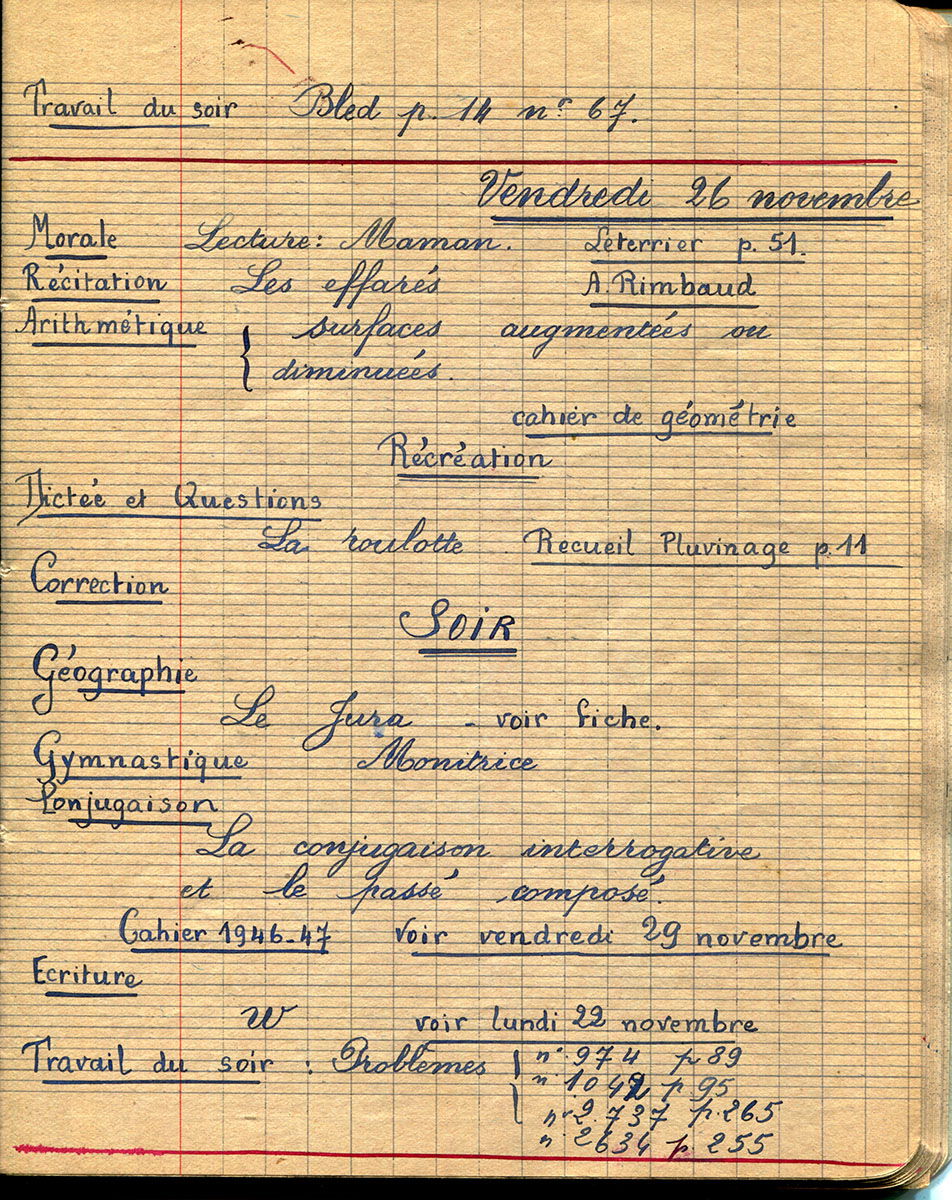 Travail du soir Bled p. 14 nº 67.
Vendredi 26 novembre
Morale Lecture: Maman. Leterrier p. 51.
Récitation Les effarés A. Rimbaud
Arithmétique { surfaces augmentées ou
diminuées.
cahier de géométrie
Récréation
Dictée et Questions
La roulotte Recueil Pluvinage p. 11
Correction
SOIR
Géographie
Le Jura - voir fiche.
Gymnastique Monitrice
Conjugaison
La conjugaison interrogative
et le passé composé.
Cahier 1946-47 Voir vendredi 29 novembre
Ecriture
W voir lundi 22 novembre
Travail du soir : Problèmes { nº 974 p 89
nº 1042 p 95
nº 2.737 p. 265
nº 2634 p. 255